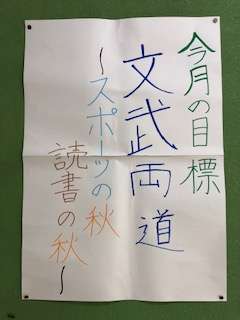 今月の目標
文武両道
～スポーツの秋
読書の秋～